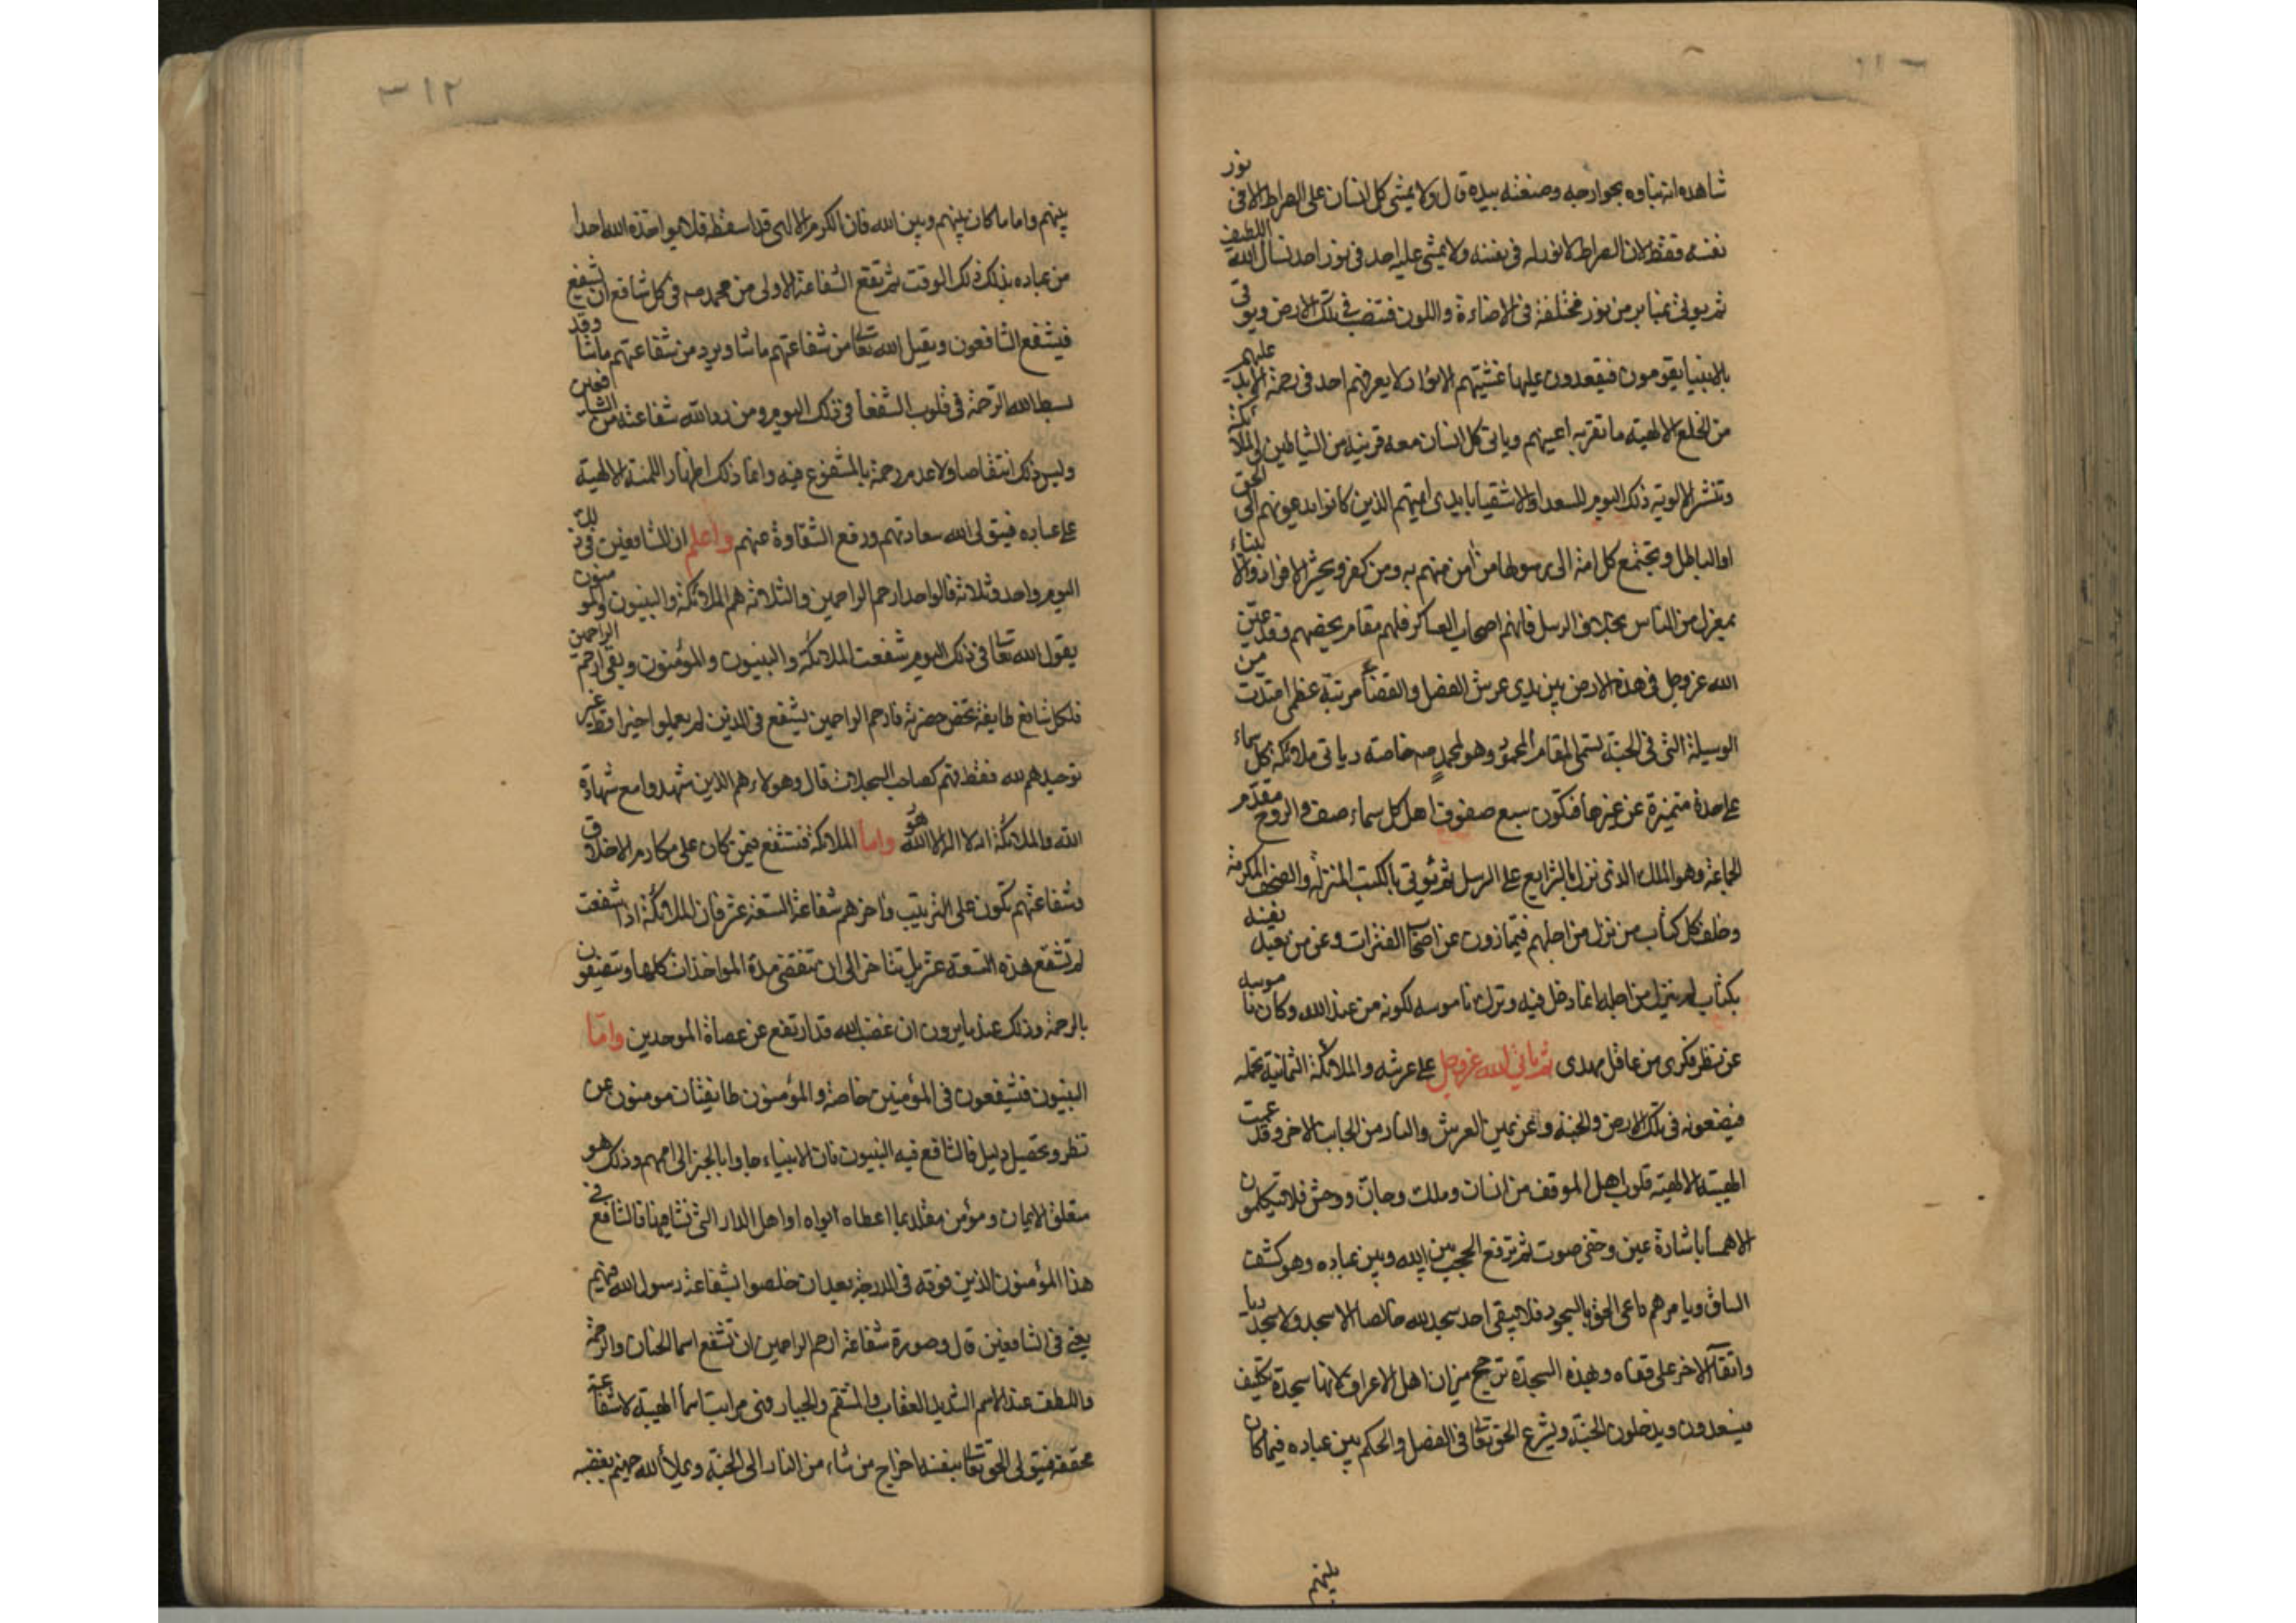 شاهده انه بناوه بجوارحه وصنعته بيده قال ولا يمشى كل انسان على الصراط الا فى نور
نفسه فقط لان الصراط لا نور له فى نفسه ولا يمشى عليه احد فى نور احد نسال الله اللطيف
ثم يوتى بمنابر من نور مختلفة فى الاضاءة واللون فتنصب فى تلك الارض ويوتى
بالانبيا يقومون فيقعدون عليها غشيتهم الانوار لا يعرفهم احد فى رحمة الابد عليهم
من الخلع الالهية ما تقر به اعينهم وياتى كل انسان معه قرينه من الشياطين والملائكة
وتنشر الالوية ذلك اليوم للسعدا والاشقيا بايدى ايمتهم الذين كانوا يدعونهم الى الحق
او الباطل وتجتمع كل امة الى رسولها من امن منهم به ومن كفر ويحشر الافراد والانبياء
بمعزل من الناس بخلاف الرسل فانهم اصحاب العساكر فلهم مقام يخصهم وقد عيّن
الله عز وجل فى هذه الارض بين يدى عرش الفصل والقضا مرتبة عظمى امتدت من
الوسيلة التى فى الجنة تسمى المقام المحمود وهو لمحمد صه خاصة وياتى ملائكة كل سماء
على حدة متميزة عن غيرها فتكون سبع صفوف اهل كل سماء صف والروح مقدّم
الجماعة وهو الملك الذى نزل بالشرايع على الرسل ثم يُوتى بالكتب المنزلة والصحف المكرمة
وخلف كل كتاب من نزل من اجلهم فيمتازون عن اصحاب الفترات وعن من تعبد نفسه
بكتاب لم ينزل من اجله انما دخل فيه وترك ناموسه لكونه من عند الله وكان ناموسه
عن نظر فكرى من عاقل مهدى ثم ياتى الله عز وجل على عرشه والملائكة الثمانية تحمله
فيضعونه فى تلك الارض والجنة عن يمين العرش والنار من الجانب الاخر وقد عمت
الهيبة الالهية قلوب اهل الموقف من انسان وملك وجان ووحش فلا يتكلمون
الا همسا باشارة عين وخفى صوت ثم ترفع الحجب بين الله وبين عباده وهو كشف
الساق ويامرهم داعى الحق بالسجود فلا يبقى احد سجد لله خالصا الا سجد ولا سجد ريا
واتقآ الا خر على قفاه وبهذه السجدة ترجح ميزان اهل الاعراف لانها سجدة تكليف
فيسعدون ويدخلون الجنة ويشرع الحق تعالى فى الفصل والحكم بين عباده فيما كان
بينهم
٣١٢
بينهم واما ما كان بينهم وبين الله فان الكرم الالهى قد اسقطه فلا يواخذ الله احدا
من عباده بذلك ذلك الوقت ثم تقع الشفاعة الاولى من محمد صه فى كل شافع ان يشفع
فيشفع الشافعون ويقبل الله تعالى من شفاعتهم ما شا ويرد من شفاعتهم ما شا وقد
بسط الله الرحمة فى قلوب الشفعآ فى ذلك اليوم ومن رد الله شفاعته من الشافعين
وليس ذلك انتقاصا ولا عدم رحمة بالمشفوع فيه وانما ذلك اظهار المنة الالهية
على عباده فيتولى الله سعادتهم ورفع الشقاوة عنهم واعلم ان الشافعين فى ذلك
اليوم واحد وثلاثة فالواحد ارحم الراحمين والثلاثة هم الملائكة والنبيون والمومنون
يقول الله تعالى فى ذلك اليوم شفعت الملائكة والنبيون والمؤمنون وبقى ارحم الراحمين
فلكل شافع طايفة تخص حضرته فارحم الراحمين يشفع فى الذين لم يعملوا خيرا قط غير
توحيدهم لله فقط فهم كصاحب السجلات قال وهولاء هم الذين شهدوا مع شهادة
الله والملائكة انه لا اله الا الله هو واما الملائكة فتشفع فيمن كان على مكارم الاخلاق
وشفاعتهم تكون على الترتيب واخرهم شفاعة التسعة عشر فان الملائكة اذا شفعت
لم تشفع هذه التسعة عشر بل يتاخر الى ان تنقضى مدة المواخذات كلها ويتصفون
بالرحمة وذلك عندما يرون ان غضب الله قد ارتفع عن عصاة الموحدين واما
النبيون فيشفعون فى المؤمنين خاصة والمؤمنون طائفتان مومنون عن
نظر وتحصيل دليل فالشافع فيه النبيون فان الانبياء جاوا بالخبر الى اممهم وذلك هو
متعلق الايمان ومؤمن مقلد بما اعطاه ابواه او اهل الدار التى نشا فيها فالشافع فى
هذا المؤمنون الذين فوقه فى الدرجة بعد ان خلصوا بشفاعة رسول الله فيهم
يعنى فى الشافعين قال وصورة شفاعة ارحم الراحمين ان تشفع اسما الحنان والرحمة
واللطف عند الاسم الشديد العقاب والمنتقم والجبار وهى مراتب اسما الهية لا شفاعة
محققة فيتولى الحق تعالى بنفسه اخراج من شاء من النار الى الجنة ويملأ الله جهنم بغضبه